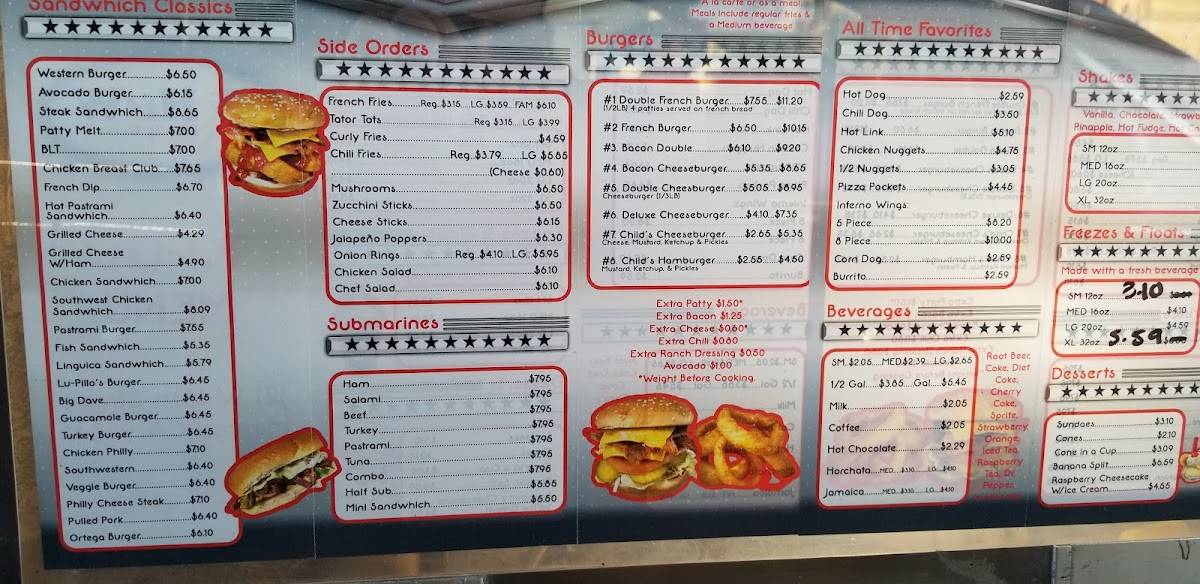 Sandwich Classics
Western Burger..............$6.50
Avocado Burger..............$6.15
Steak Sandwhich............$8.65
Patty Melt..............$7.00
BLT..............$7.00
Chicken Breast Club......$7.65
French Dip..............$6.70
Hot Pastrami
Sandwhich..............$6.40
Grilled Cheese..............$4.29
Grilled Cheese
W/Ham..............$4.90
Chicken Sandwhich..........$7.00
Southwest Chicken
Sandwhich..............$8.09
Pastrami Burger..............$7.55
Fish Sandwhich..............$5.35
Linguica Sandwhich.........$5.79
Lu-Pillo's Burger..............$6.45
Big Dave..............$6.45
Guacamole Burger...........$6.45
Turkey Burger..............$6.45
Chicken Philly..............$7.10
Southwestern..............$6.40
Veggie Burger..............$6.40
Philly Cheese Steak.........$7.10
Pulled Pork..............$6.40
Ortega Burger..............$6.10
Side Orders
French Fries.........Reg. $3.15....LG. $3.59...FAM $6.10
Tator Tots..............Reg $3.15....LG $3.99
Curly Fries..............$4.59
Chili Fries..............Reg..$3.79.......LG $5.65
..............(Cheese $0.60)
Mushrooms..............$6.50
Zucchini Sticks..............$6.50
Cheese Sticks..............$6.15
Jalapeño Poppers..............$6.30
Onion Rings..............Reg $4.10...LG...$5.95
Chicken Salad..............$6.10
Chef Salad..............$6.10
Submarines
Ham..............$7.95
Salami..............$7.95
Beef..............$7.95
Turkey..............$7.95
Pastrami..............$7.95
Tuna..............$7.95
Combo..............$7.95
Half Sub..............$5.65
Mini Sandwhich..............$5.50
A la carte or as a meal
Meals include regular fries &
a Medium beverage
Burgers
#1 Double French Burger......$7.55...$11.20
(1/2LB) 4 patties served on french bread
#2 French Burger..............$6.50.........$10.15
#3. Bacon Double..............$6.10.........$9.20
#4. Bacon Cheeseburger.......$5.35...$8.65
#5. Double Cheesburger......$5.05...$8.95
Cheeseburger (1/3LB)
#6. Deluxe Cheeseburger......$4.10...$7.35
#7. Child's Cheeseburger......$2.65...$5.35
Cheese, Mustard, Ketchup & Pickles
#8. Child's Hamburger..........$2.55.....$4.50
Mustard, Ketchup, & Pickles
Extra Patty $1.50*
Extra Bacon $1.25
Extra Cheese $0.60*
Extra Chili $0.60
Extra Ranch Dressing $0.50
Avocado $1.00
*Weight Before Cooking
All Time Favorites
Hot Dog..............$2.59
Chili Dog..............$3.50
Hot Link..............$5.10
Chicken Nuggets..............$4.75
1/2 Nuggets..............$3.05
Pizza Pockets..............$4.45
Inferno Wings:
5 Piece..............$6.20
8 Piece..............$10.00
Corn Dog..............$2.59
Burrito..............$2.59
Beverages
SM. $2.05...MED $2.39...LG. $2.65
1/2 Gal.....$3.85....Gal....$5.45
Milk..............$2.05
Coffee..............$2.05
Hot Chocolate..............$2.29
Horchata...MED...$3.10......LG...$4.10
Jamaica......MED...$3.10......LG...$4.10
Root Beer,
Coke, Diet
Coke,
Cherry
Coke,
Sprite,
Strawberry,
Orange,
Iced Tea,
Raspberry
Tea, Dr.
Pepper,
Shakes
Vanilla, Chocolate,
Pinapple, Hot Fudge,
SM 12oz
MED 16oz
LG 20oz
XL 32oz
Freezes & Floats
Made with a fresh beverage
SM 12oz 3.10
MED 16oz..............$4.10
LG 20oz..............$4.59
XL 32oz 5.59
Desserts
Sundaes..............$3.10
Cones..............$2.10
Cone in a Cup..............$3.09
Banana Split..............$6.59
Raspberry Cheesecake
W/Ice Cream..............$4.65